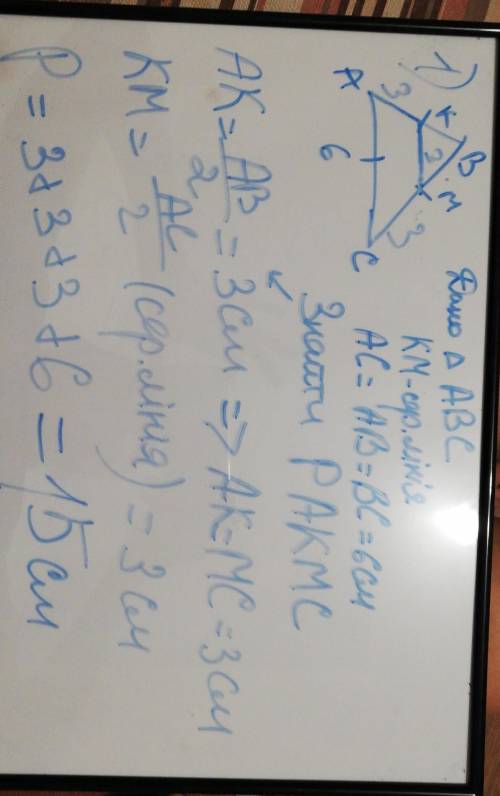 1)
Дано △ ABC
KM-сер.лінія
AC = AB = BC = 6см
Знайти PAKMC
B
K M
3 3 3
A 6 C
AK = AB/2 = 3см => AK=MC = 3см
KM = AC/2 (сер.лінія) = 3см
P = 3+3+3+6 = 15см